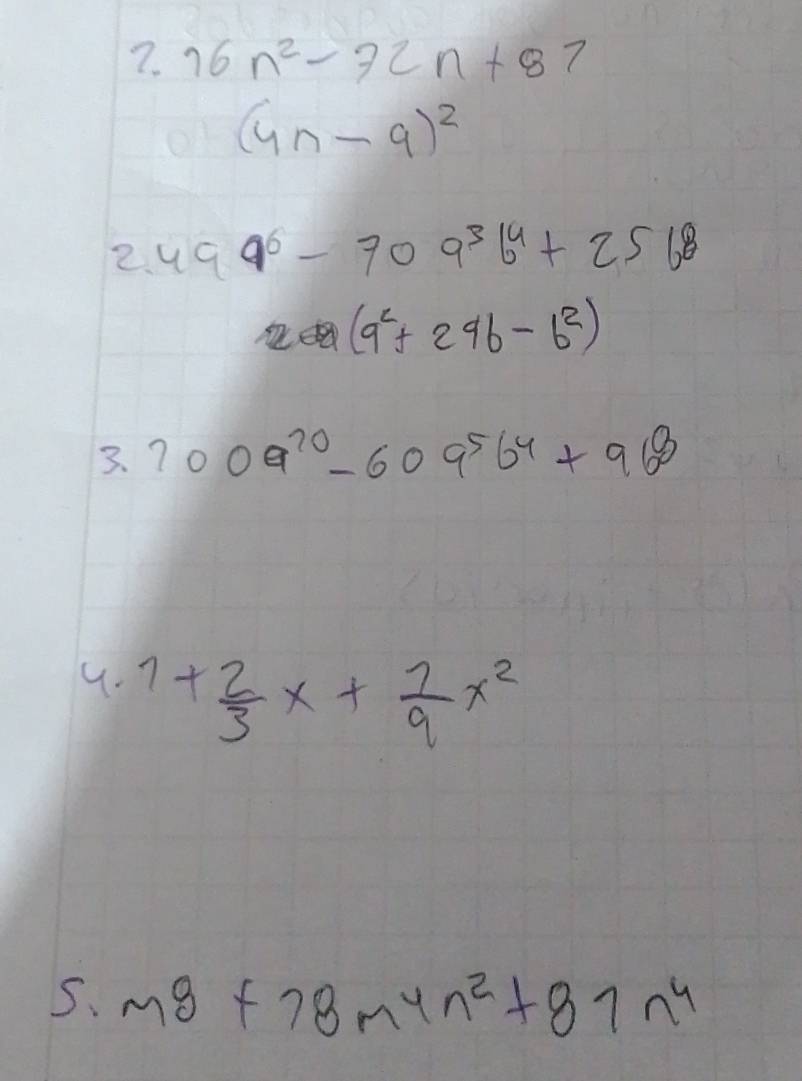 1. 16n² - 72n + 81
(4n - 9)²
2. 49a⁶ - 70a³b⁴ + 25b⁸
(a² + 2ab - b²)
3. 100a¹⁰ - 60a⁵b⁴ + 9b⁸
4. 1 + 2/3 x + 1/9 x²
5. m8 + 18m4n² + 81n⁴